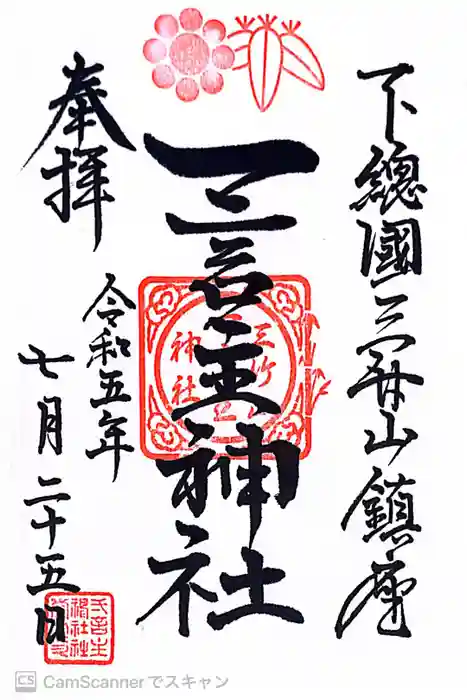 下總國三竹山鎮座
一言主神社
奉拝
令和五年
七月二十五日
三竹
神社
CS CamScannerでスキャン